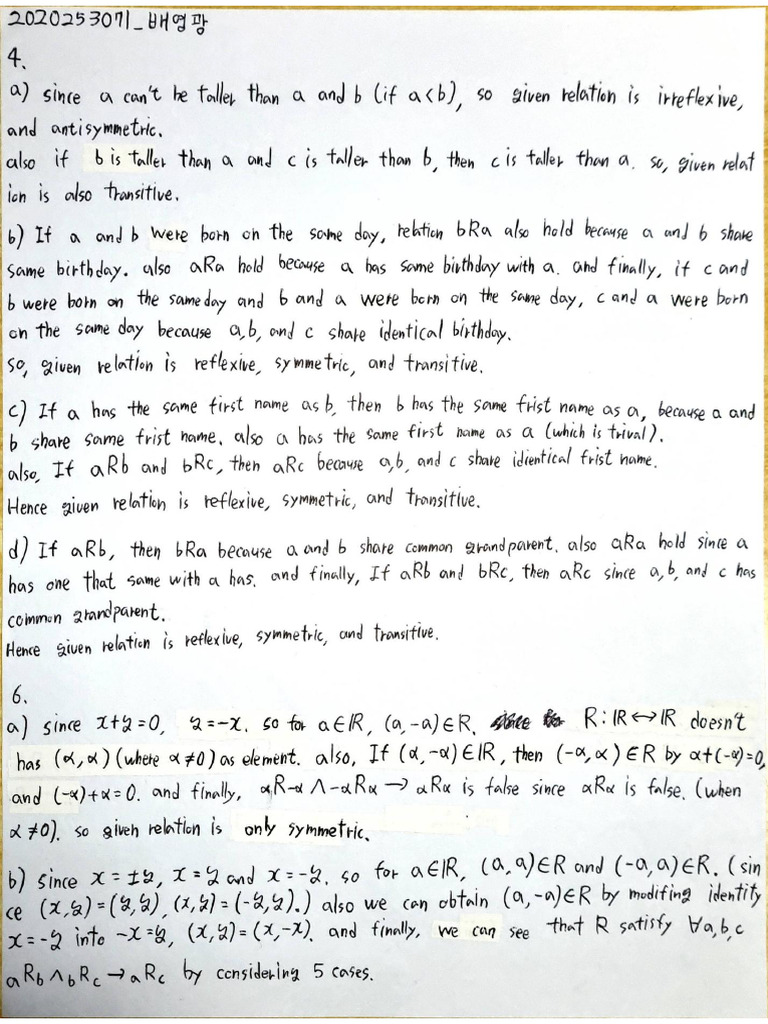 2020253071_배영광
4.
a) since a can't be taller than a and b (if a<b), so given relation is irreflexive,
and antisymmetric.
also if b is taller than a and c is taller than b, then c is taller than a. so, given relat
ion is also transitive.
b) If a and b were born on the same day, relation bRa also hold because a and b share
same birthday. also aRa hold because a has same birthday with a. and finally, if c and
b were born on the same day and b and a were born on the same day, c and a were born
on the same day because a,b, and c share identical birthday.
so, given relation is reflexive, symmetric, and transitive.
c) If a has the same first name as b, then b has the same frist name as a, because a and
b share same frist name. also a has the same first name as a (which is trival).
also, If aRb and bRc, then aRc because a,b, and c share idientical frist name.
Hence given relation is reflexive, symmetric, and transitive.
d) If aRb, then bRa because a and b share common grandparent. also aRa hold since a
has one that same with a has. and finally, If aRb and bRc, then aRc since a,b, and c has
common grandparent.
Hence given relation is reflexive, symmetric, and transitive.
6.
a) since x+y=0, y=-x. so for a∈ℝ, (a,-a)∈R. R:ℝ↔ℝ doesn't
has (α,α) (where α≠0) as element. also, If (α,-α)∈ℝ, then (-α,α)∈R by α+(-α)=0,
and (-α)+α=0. and finally, αR-α ∧ -αRα → αRα is false since αRα is false. (when
α≠0). so given relation is only symmetric.
b) since x=±y, x=y and x=-y. so for a∈ℝ, (a,a)∈R and (-a,a)∈R. (sin
ce (x,y)=(y,y), (x,y)=(-y,y).) also we can obtain (a,-a)∈R by modifing identity
x=-y into -x=y, (x,y)=(x,-x). and finally, we can see that R satisfy ∀a,b,c
aRb∧bRc→aRc by considering 5 cases.